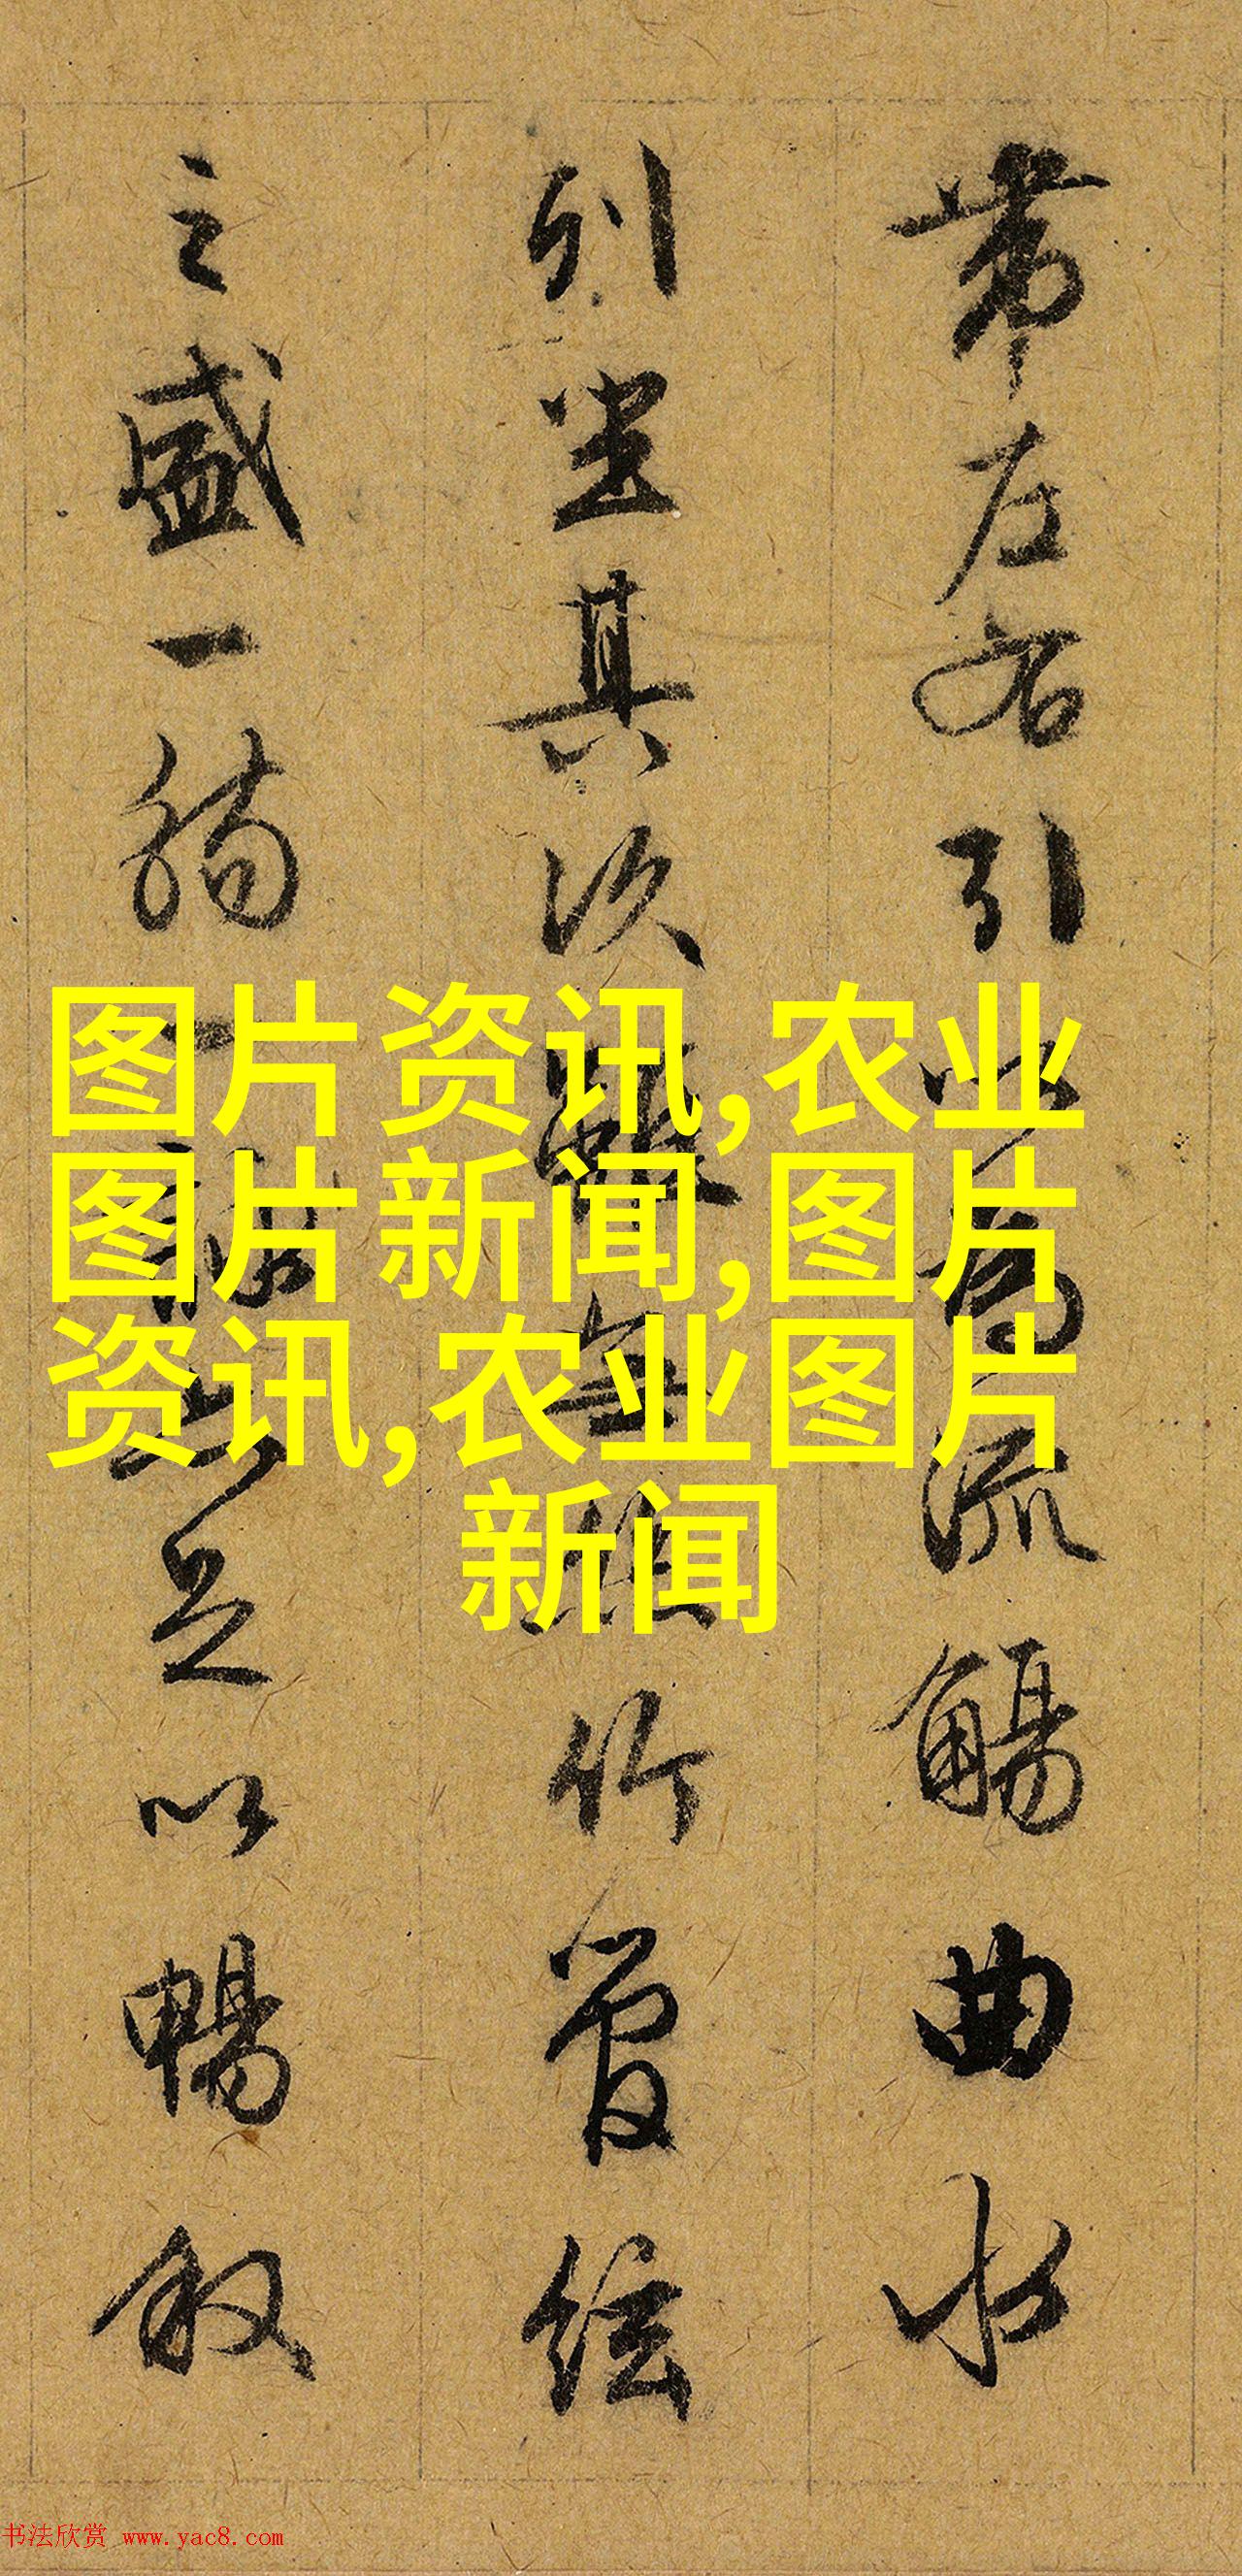 图片资讯,农业
图片新闻,图片
资讯,农业图片
新闻
帶左右引以為流觴曲水
列坐其次雖無竹管絃
之盛一觴一足以暢叙
书法欣赏 www.yac8.com